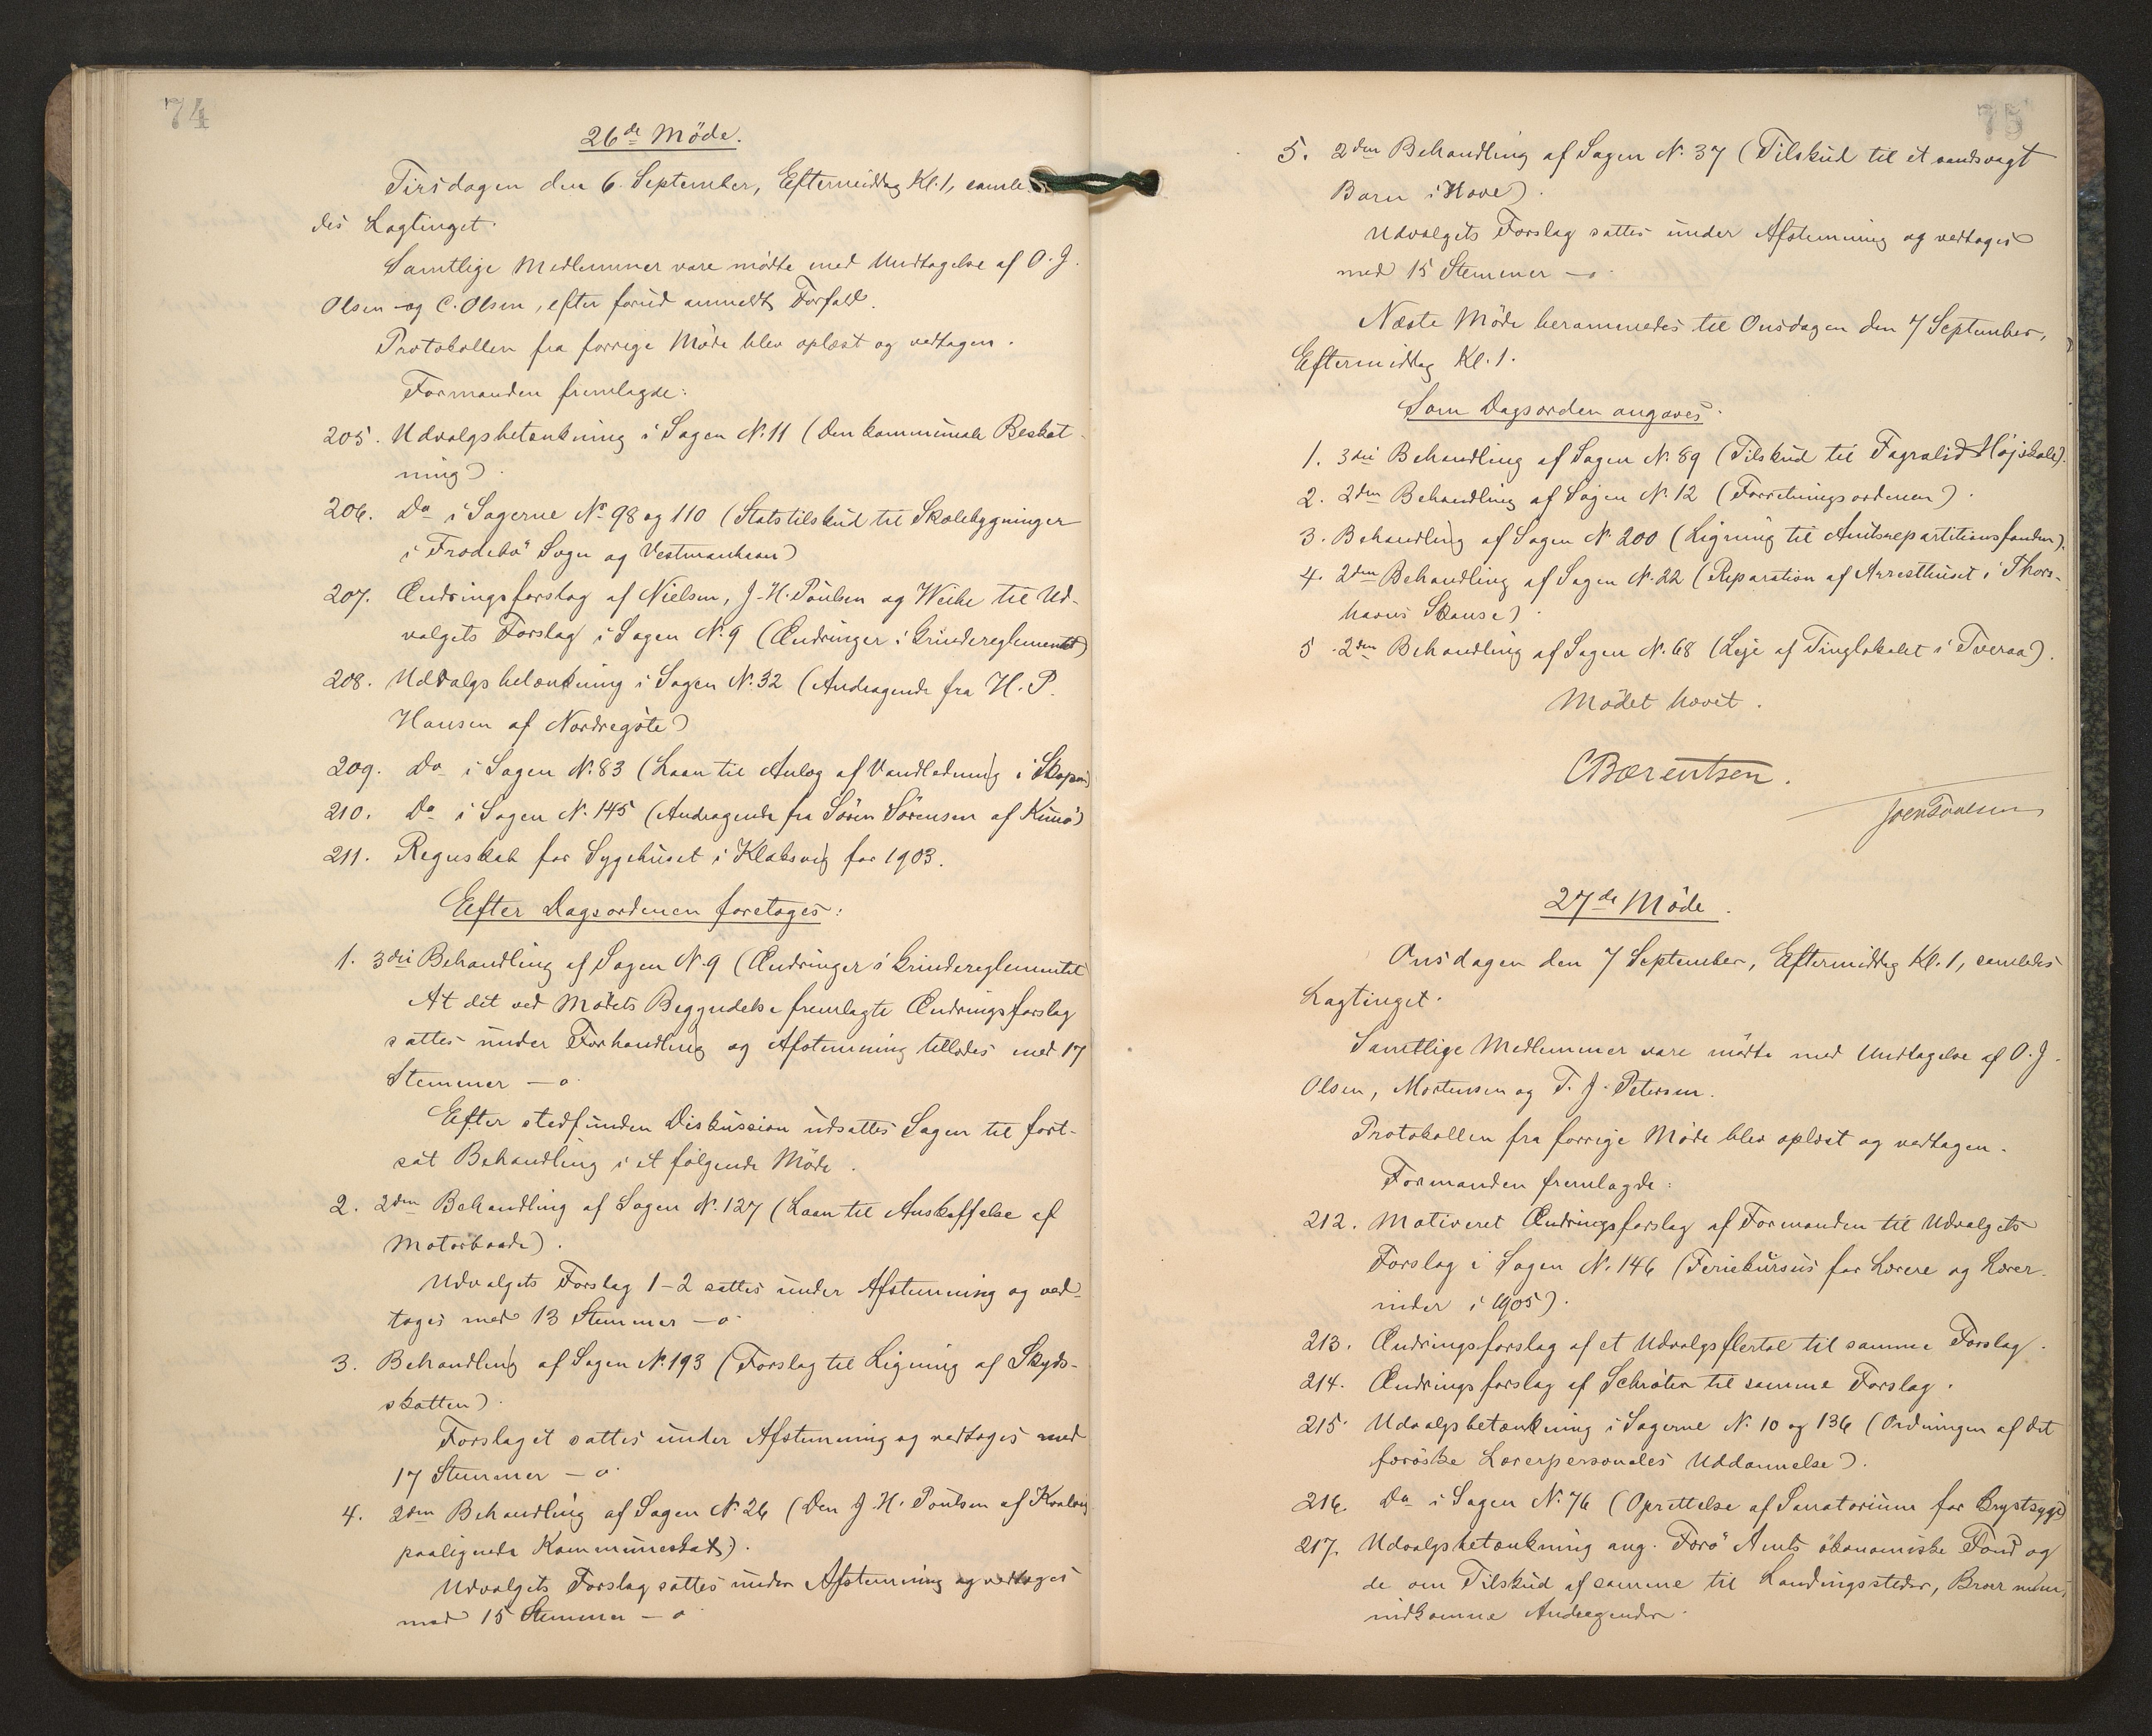 74
26de Möde.
Tirsdagen den 6. September, Eftermiddag Kl. 1, samle-
des Lagtinget.
Samtlige Medlemmer vare mödte med Undtagelse af O. J.
Olsen og C. Olsen, efter forud anmeldt Forfald.
Protokollen fra forrige Möde blev oplæst og vedtagen.
Formanden fremlagde:
205. Udvalgsbetænkning i Sagen N. 11 (Den kommunale Beskat-
ning).
206. Do i Sagerne No 98 og 110 (Statstilskud til Skolebygninger
i Frodebö Sogn og Vestmanhavn)
207. Ændringsforslag af Nielsen, J. H. Poulsen og Weihe til Ud-
valgets Forslag i Sagen N. 9 (Ændringer i Grindereglementet)
208. Udvalgsbetænkning i Sagen N. 32 (Andragende fra H. P.
Hansen af Nordregöte)
209. Do i Sagen N. 83 (Laan til Anlæg af Vandledning i Skopen)
210. Do i Sagen N. 145 (Andragende fra Sören Sörensen af Kunö)
211. Regnskab for Sygehuset i Klaksvig for 1903.
Efter Dagsordenen foretoges:
1. 3die Behandling af Sagen N. 9 (Ændringer i Grindereglementet
At det ved Mödets Begyndelse fremlagte Ændringsforslag
sattes under Forhandling og Afstemning tillodes med 17
Stemmer – o.
Efter stedfunden Diskussion udsattes Sagen til fort-
sat Behandling i et fölgende Möde.
2. 2den Behandling af Sagen N. 127 (Laan til Anskaffelse af
Motorbaade).
Udvalgets Forslag 1-2 sattes under Afstemning og ved-
toges med 13 Stemmer – o.
3. Behandling af Sagen N. 193 (Forslag til Ligning af Skyds-
skatten).
Forslaget sattes under Afstemning og vedtoges med
17 Stemmer – o.
4. 2den Behandling af Sagen N. 26 (Den J. H. Poulsen af Kvalvig
paalignede Kommuneskat).
Udvalgets Forslag sattes under Afstemning og vedtoges
med 15 Stemmer – o
75
5. 2den Behandling af Sagen N. 37 (Tilskud til et aandsvagt
Barn i Hove).
Udvalgets Forslag sattes under Afstemning og vedtoges
med 15 Stemmer – o.
Næste Möde berammedes til Onsdagen den 7 September,
Eftermiddag Kl. 1.
Som Dagsorden angaves.
1. 3die Behandling af Sagen N. 89 (Tilskud til Fagralid Höjskole).
2. 2den Behandling af Sagen N. 12 (Forretningsordenen).
3. Behandling af Sagen N. 200 (Ligning til Amtsrepartitionsfonden).
4. 2den Behandling af Sagen N. 22 (Reparation af Arresthuset i Thors-
havns Skanse).
5. 2den Behandling af Sagen N. 68 (Leje af Tinglokalet i Tveraa).
Mödet hævet.
CBærentsen.
27de Möde.
Onsdagen den 7 September, Eftermiddag Kl. 1, samledes
Lagtinget.
Samtlige Medlemmer vare mödte med Undtagelse af O. J.
Olsen, Mortensen og T. J. Petersen.
Protokollen fra forrige Möde blev oplæst og vedtagen.
Formanden fremlagde:
212. Motiveret Ændringsforslag af Formanden til Udvalgets
Forslag i Sagen N. 146 (Feriekursus for Lærere og Lærer-
inder i 1905).
213. Ændringsforslag af et Udvalgsflertal til samme Forslag.
214. Ændringsforslag af Schröter til samme Forslag.
215. Udvalgsbetænkning i Sagerne N. 10 og 136 (Ordningen af det
færöske Lærerpersonales Uddannelse).
216. Do i Sagen N. 76 (Oprettelse af Sanatorium for Brystsyge)
217. Udvalgsbetænkning ang. Færö Amts ökonomiske Fond og
de om Tilskud af samme til Landingssteder, Broer m.m.
indkomne Andragender.